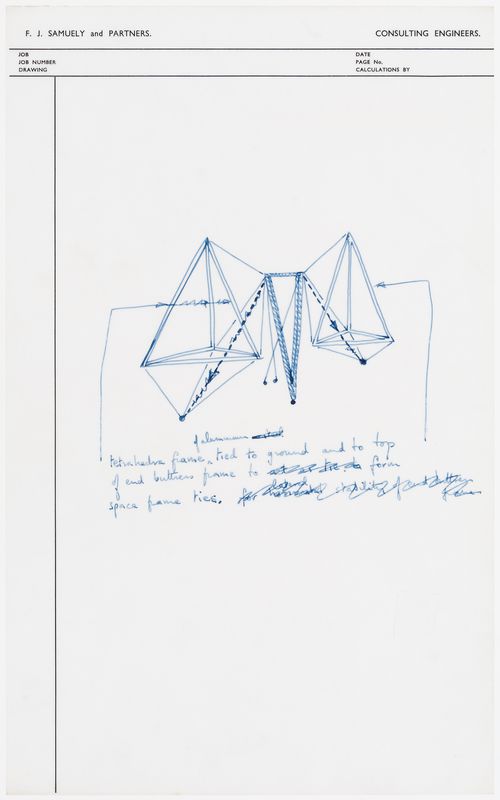 F. J. SAMUELY and PARTNERS. CONSULTING ENGINEERS.
JOB DATE
JOB NUMBER PAGE No.
DRAWING CALCULATIONS BY
of aluminium
tetrahedra frame, tied to ground and to top
of end buttress frame to form
space frame ties. for stability of end buttress
frames